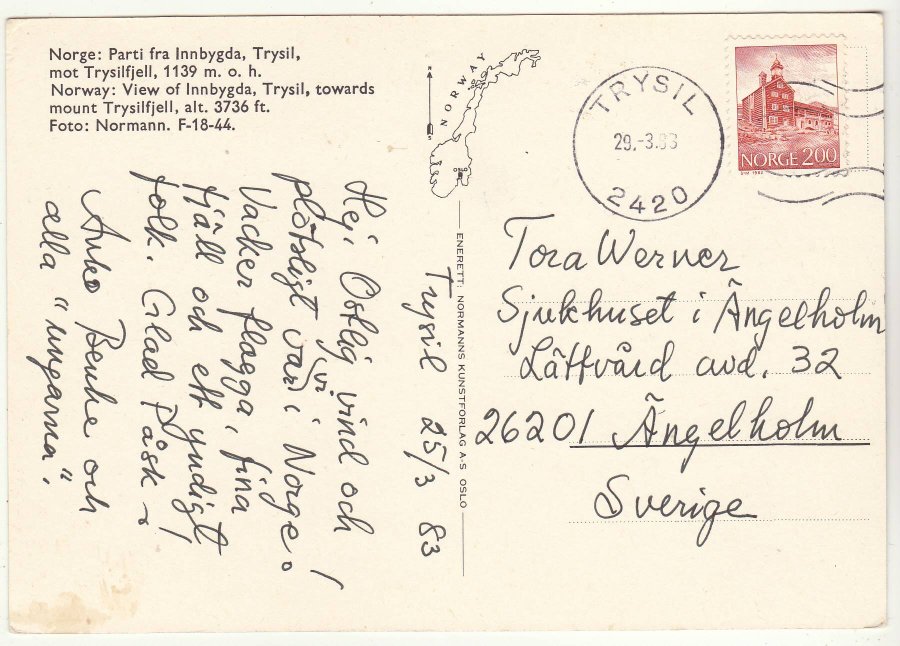 Norge: Parti fra Innbygda, Trysil,
mot Trysilfjell, 1139 m. o. h.
Norway: View of Innbygda, Trysil, towards
mount Trysilfjell, alt. 3736 ft.
Foto: Normann. F-18-44.
NORWAY
S
OSLO
TRYSIL
29.-3.83
2420
NORGE 200
ENERETT: NORMANNS KUNSTFORLAG A-S OSLO
Trysil 25/3 83
Hej! Ostlig vind och
plötsligt var vi i Norge!
Vacker flagga, fina
fjäll och ett yndigt
folk. Glad Påsk!
Benke och
alla "ungarna".
Tora Werner
Sjukhuset i Ängelholm
Lättvård avd. 32
26201 Ängelholm
Sverige